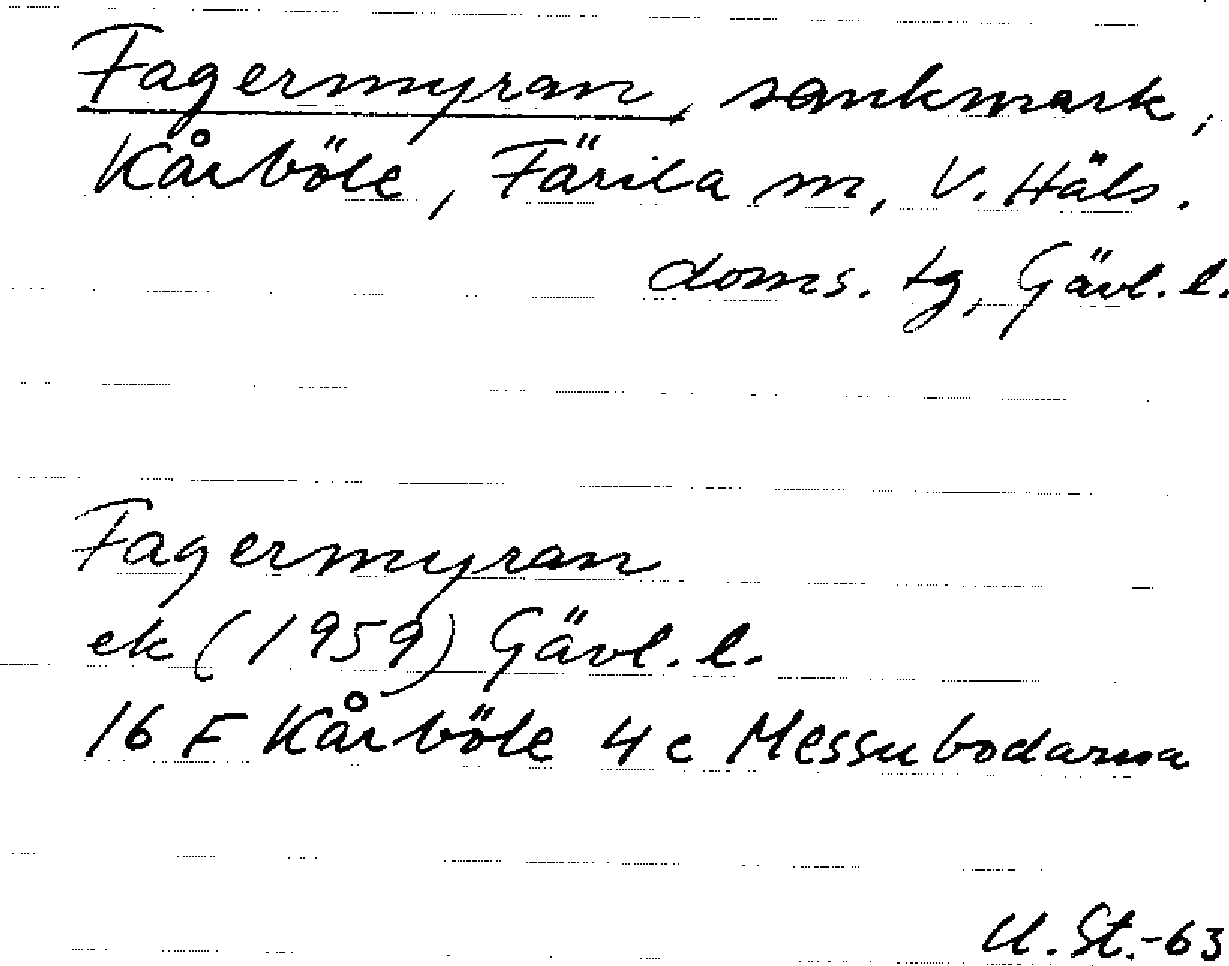 Fagermyran, sankmark,
Kårböle, Färila sn, V. Häls.
doms. tg, Gävl. l.
Fagermyran
ek (1959) Gävl. l.
16 F Kårböle 4 c Messubodarna
U. St.-63